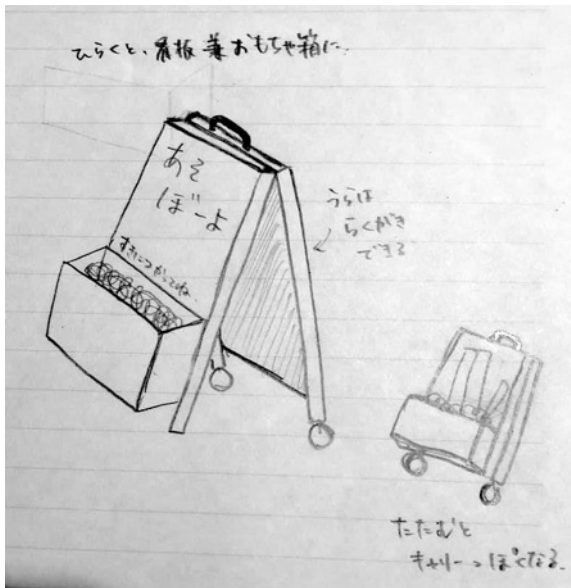 ひらくと、看板 兼 おもちゃ箱に
あそ
ぼーよ
すきにつかってね
うらは
らくがき
できる
たたむと
キャリーっぽくなる.